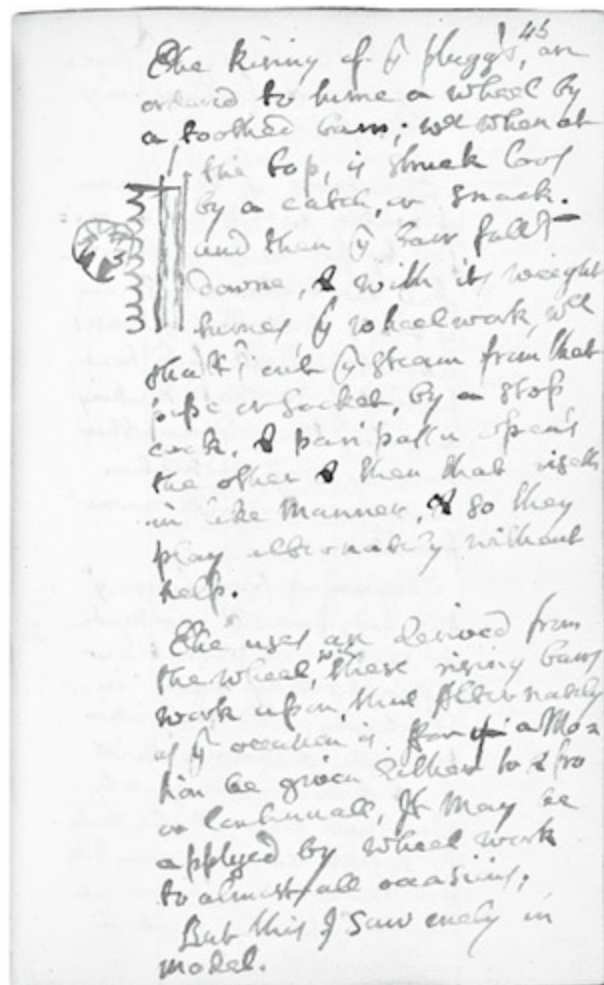 45
The Rising of ye pluggs, are
ordained to turne a wheel by
a toothed barr; wch when at
the top, is struck loos
by a catch, or snack.
and then ye barr falls
downe, & with its weight
turnes, ye wheelwork, wch
shutts out ye steam from that
pipe or socket, by a stop
cock, & pari passu opens
the other & then that riseth
in like manner, & so they
play alternately without
help.
The uses are derived from
the wheel, wch these rising barrs
work upon, thus Alternately
as ye occasion is. For if a Mo=
tion be given either to & fro
or Continuall, It may be
applyed by wheel work
to almost all occasions,
But this I saw onely in
model.